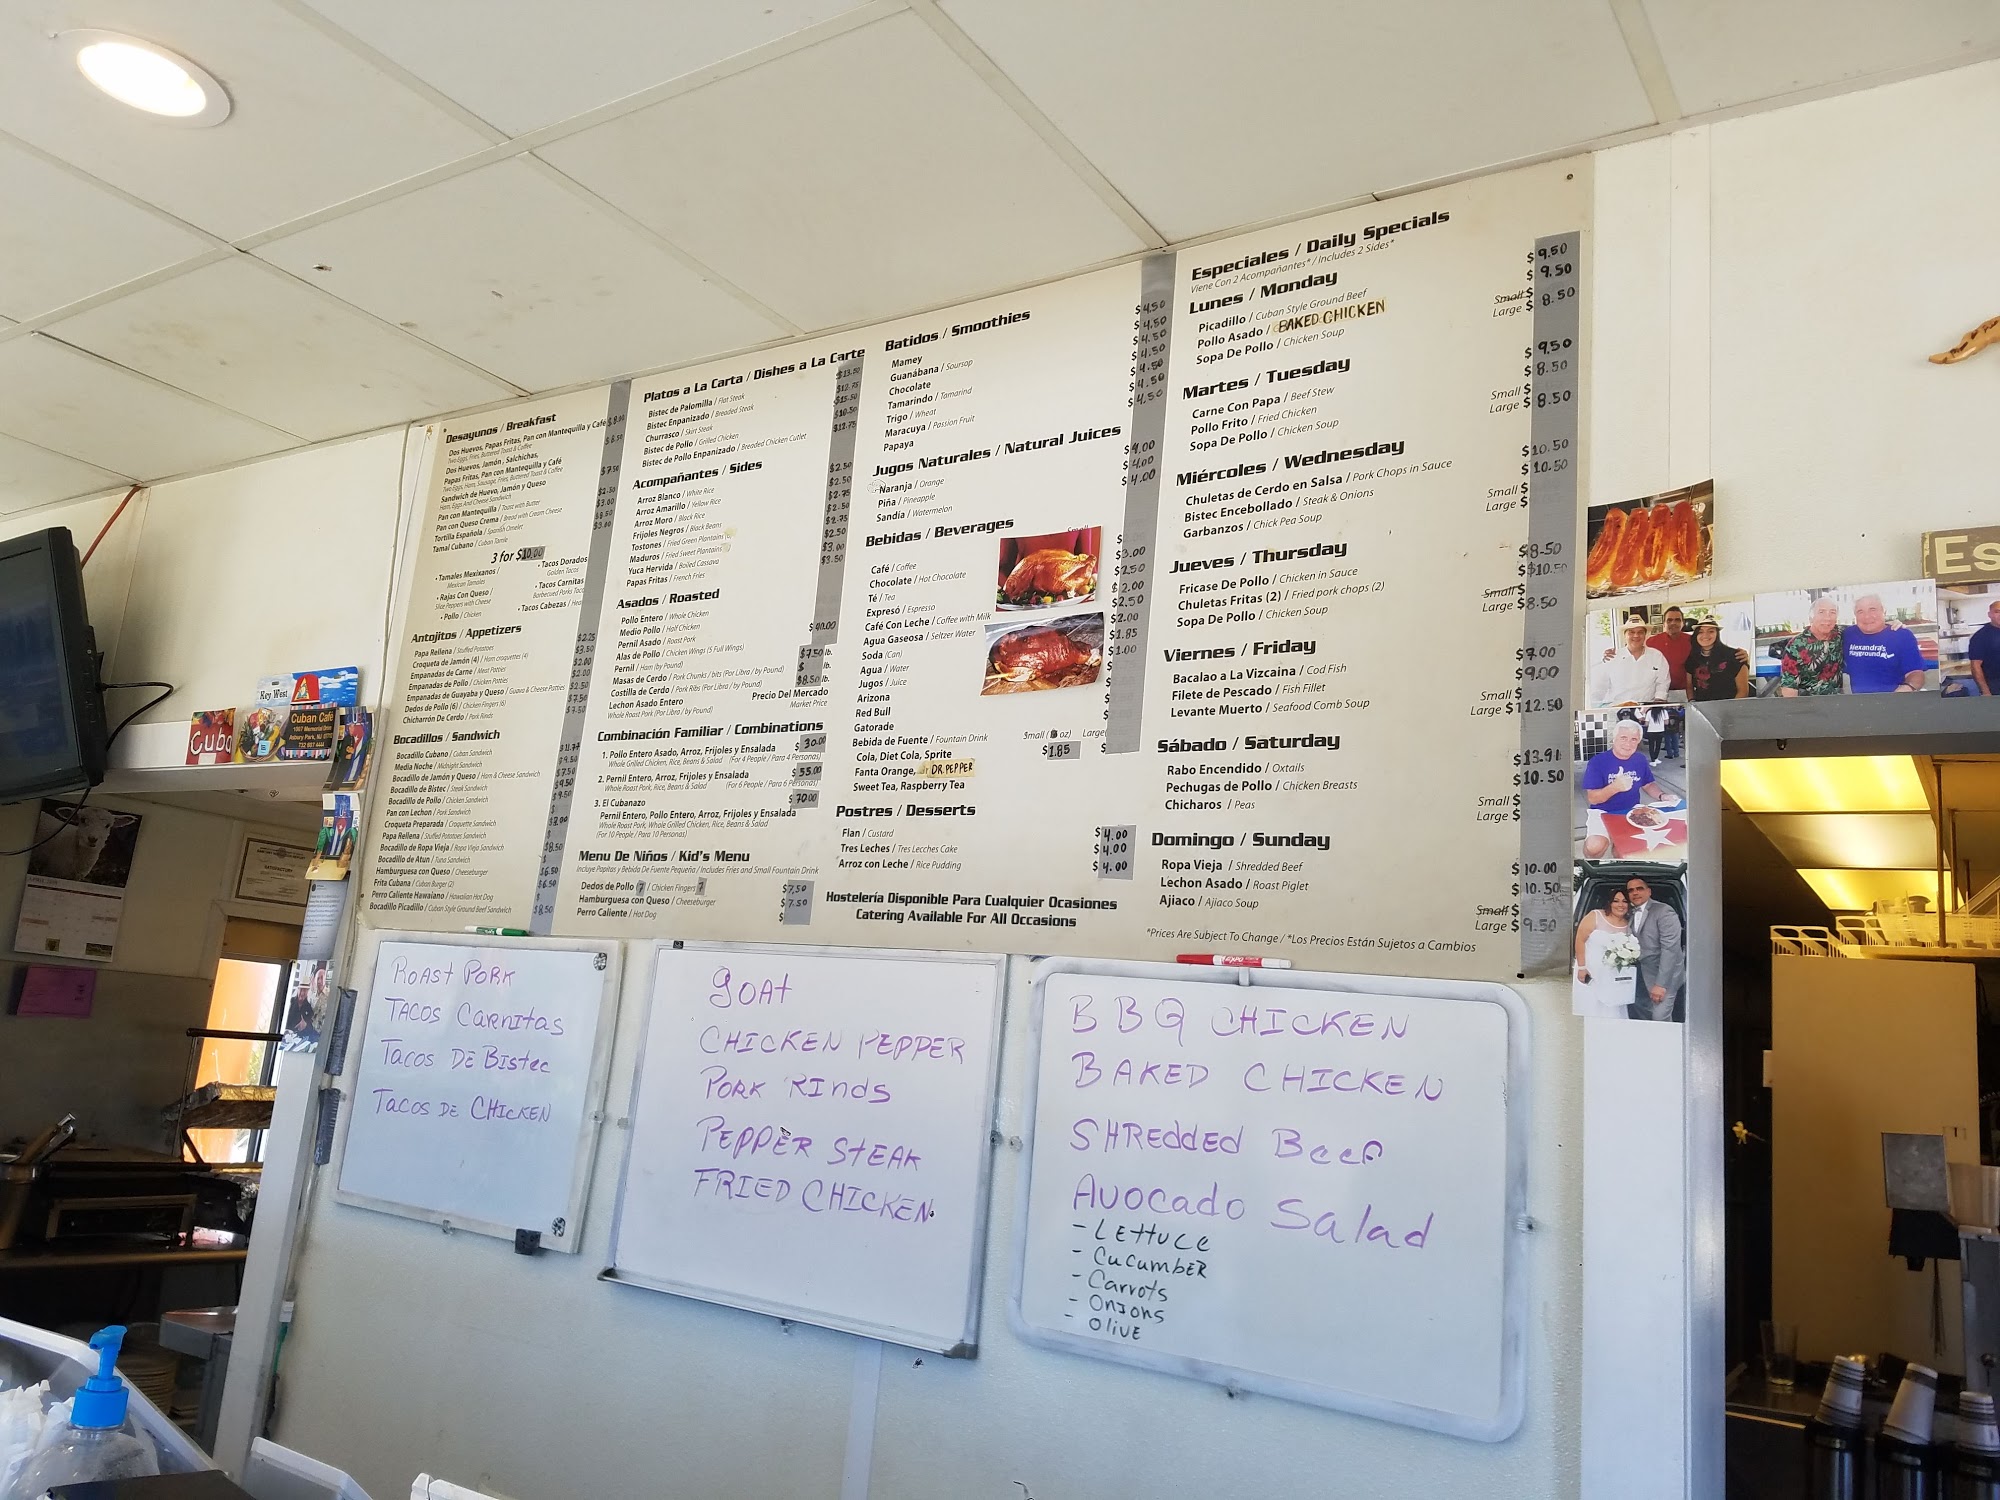 Desayunos / Breakfast
Dos Huevos, Papas Fritas, Pan con Mantequilla y Café
Two Eggs, Fries, Buttered Toast & Coffee
Dos Huevos, Jamón, Salchichas,
Papas Fritas, Pan con Mantequilla y Café
Two Eggs, Ham, Sausage, Fries, Buttered Toast & Coffee
Sandwich de Huevo, Jamón y Queso
Ham, Eggs And Cheese Sandwich
Pan con Mantequilla / Toast with Butter
Pan con Queso Crema / Bread with Cream Cheese
Tortilla Española / Spanish Omelet
Tamal Cubano / Cuban Tamle
3 for $10.00
• Tamales Mexixanos /
Mexican Tamales
• Rajas Con Queso /
Slice Peppers with Cheese
• Pollo / Chicken
• Tacos Dorados
Golden Tacos
• Tacos Carnitas
Barbecued Porks Taco
• Tacos Cabezas /
Antojitos / Appetizers
Papa Rellena / Stuffed Potatoes $2.25
Croqueta de Jamón (4) / Ham croquettes (4) $3.50
Empanadas de Carne / Meat Patties $2.00
Empanadas de Pollo / Chicken Patties $2.00
Empanadas de Guayaba y Queso / Guava & Cheese Patties $2.50
Dedos de Pollo (6) / Chicken Fingers (6) $7.50
Chicharrón De Cerdo / Pork Rinds $7.50
Bocadillos / Sandwich
Bocadillo Cubano / Cuban Sandwich
Media Noche / Midnight Sandwich
Bocadillo de Jamón y Queso / Ham & Cheese Sandwich
Bocadillo de Bistec / Steak Sandwich
Bocadillo de Pollo / Chicken Sandwich
Pan con Lechon / Pork Sandwich
Croqueta Preparada / Croquette Sandwich
Papa Rellena / Stuffed Potatoes Sandwich
Bocadillo de Ropa Vieja / Ropa Vieja Sandwich
Bocadillo de Atun / Tuna Sandwich
Hamburguesa con Queso / Cheeseburger
Frita Cubana / Cuban Burger (2)
Perro Caliente Hawaiano / Hawaiian Hot Dog
Bocadillo Picadillo / Cuban Style Ground Beef Sandwich $8.50
Platos a La Carta / Dishes a La Carte
Bistec de Palomilla / Flat Steak $13.50
Bistec Empanizado / Breaded Steak $12.75
Churrasco / Skirt Steak $15.50
Bistec de Pollo / Grilled Chicken $10.50
Bistec de Pollo Empanizado / Breaded Chicken Cutlet $12.75
Acompañantes / Sides
Arroz Blanco / White Rice $2.50
Arroz Amarillo / Yellow Rice $2.50
Arroz Moro / Black Rice $2.75
Frijoles Negros / Black Beans $2.50
Tostones / Fried Green Plantains $2.75
Maduros / Fried Sweet Plantains $2.50
Yuca Hervida / Boiled Cassava $3.00
Papas Fritas / French Fries $3.50
Asados / Roasted
Pollo Entero / Whole Chicken
Medio Pollo / Half Chicken
Pernil Asado / Roast Pork $40.00
Alas de Pollo / Chicken Wings (5 Full Wings)
Pernil / Ham (by Pound) $7.50 lb.
Masas de Cerdo / Pork Chunks / bits (Por Libra / by Pound) $ lb.
Costilla de Cerdo / Pork Ribs (Por Libra / by Pound) $8.50 lb.
Lechon Asado Entero Precio Del Mercado
Whole Roast Pork (Por Libra / by Pound) Market Price
Combinación Familiar / Combinations
1. Pollo Entero Asado, Arroz, Frijoles y Ensalada $30.00
Whole Grilled Chicken, Rice, Beans & Salad (For 4 People / Para 4 Personas)
2. Pernil Entero, Arroz, Frijoles y Ensalada $55.00
Whole Roast Pork, Rice, Beans & Salad (For 6 People / Para 6 Personas)
3. El Cubanazo $70.00
Pernil Entero, Pollo Entero, Arroz, Frijoles y Ensalada
Whole Roast Pork, Whole Grilled Chicken, Rice, Beans & Salad
(For 10 People / Para 10 Personas)
Menu De Niños / Kid's Menu
Incluye Papitas y Bebida De Fuente Pequeña / Includes Fries and Small Fountain Drink
Dedos de Pollo 7 / Chicken Fingers 7 $7.50
Hamburguesa con Queso / Cheeseburger $7.50
Perro Caliente / Hot Dog $
Batidos / Smoothies
Mamey $4.50
Guanábana / Soursop $4.50
Chocolate $4.50
Tamarindo / Tamarind $4.50
Trigo / Wheat $4.50
Maracuya / Passion Fruit $4.50
Papaya $4.50
Jugos Naturales / Natural Juices
Naranja / Orange $4.00
Piña / Pineapple $4.00
Sandia / Watermelon $4.00
Bebidas / Beverages
Small
Café / Coffee
Chocolate / Hot Chocolate $3.00
Té / Tea $2.50
Expresó / Espresso $2.00
Café Con Leche / Coffee with Milk $2.50
Agua Gaseosa / Seltzer Water $2.00
Soda (Can) $1.85
Agua / Water $1.00
Jugos / Juice
Arizona
Red Bull
Gatorade
Bebida de Fuente / Fountain Drink Small ( oz) Large
Cola, Diet Cola, Sprite $1.85 $
Fanta Orange, DR. PEPPER
Sweet Tea, Raspberry Tea
Postres / Desserts
Flan / Custard $4.00
Tres Leches / Tres Lecches Cake $4.00
Arroz con Leche / Rice Pudding $4.00
Hostelería Disponible Para Cualquier Ocasiones
Catering Available For All Occasions
Especiales / Daily Specials
Viene Con 2 Acompañantes* / Includes 2 Sides*
Lunes / Monday
Picadillo / Cuban Style Ground Beef $9.50
Pollo Asado / BAKED CHICKEN $9.50
Sopa De Pollo / Chicken Soup Small $
Large $8.50
Martes / Tuesday
Carne Con Papa / Beef Stew $9.50
Pollo Frito / Fried Chicken $8.50
Sopa De Pollo / Chicken Soup Small $
Large $8.50
Miércoles / Wednesday
Chuletas de Cerdo en Salsa / Pork Chops in Sauce $10.50
Bistec Encebollado / Steak & Onions $10.50
Garbanzos / Chick Pea Soup Small $
Large $
Jueves / Thursday
Fricase De Pollo / Chicken in Sauce $8.50
Chuletas Fritas (2) / Fried pork chops (2) $10.50
Sopa De Pollo / Chicken Soup Small $
Large $8.50
Viernes / Friday
Bacalao a La Vizcaina / Cod Fish $9.00
Filete de Pescado / Fish Fillet $9.00
Levante Muerto / Seafood Comb Soup Small $
Large $12.50
Sábado / Saturday
Rabo Encendido / Oxtails $13.91
Pechugas de Pollo / Chicken Breasts $10.50
Chicharos / Peas Small $
Large $
Domingo / Sunday
Ropa Vieja / Shredded Beef $10.00
Lechon Asado / Roast Piglet $10.50
Ajiaco / Ajiaco Soup Small $
Large $9.50
*Prices Are Subject To Change / *Los Precios Están Sujetos a Cambios
Key West
Cuba
Cuban Café
Asbury Park, NJ
Alexandra's
Playground
Es
EXPO
ROAST PORK
TACOS CARNITAS
TACOS DE BISTEC
TACOS DE CHICKEN
GOAT
CHICKEN PEPPER
PORK RINDS
PEPPER STEAK
FRIED CHICKEN
BBQ CHICKEN
BAKED CHICKEN
SHREDDED BEEF
AVOCADO SALAD
- LETTUCE
- CUCUMBER
- CARROTS
- ONIONS
- OLIVE